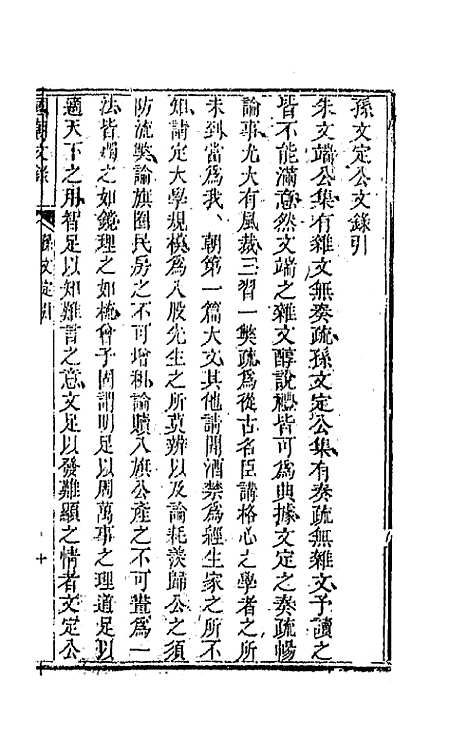 孫文定公文錄引
朱文端公集有雜文無奏疏孫文定公集有奏疏無雜文予讀之
皆不能滿意然文端之雜文醇說禮皆可為典據文定之奏疏暢
論事尤大有風裁三習一弊疏為從古名臣講格心之學者之所
未到當為我朝第一篇大文其他請開酒禁為經生家之所不
知請定大學規模為八股先生之所莫辨以及論耗羨歸公之須
防流弊論旗圈民房之不可增租論贖入旗公產之不可葺為一
法皆燭之如鏡理之如梳曾子固謂明足以周萬事之理道足以
適天下之用智足以知難言之意文足以發難顯之情者文定公
國朝文錄 孫文定引